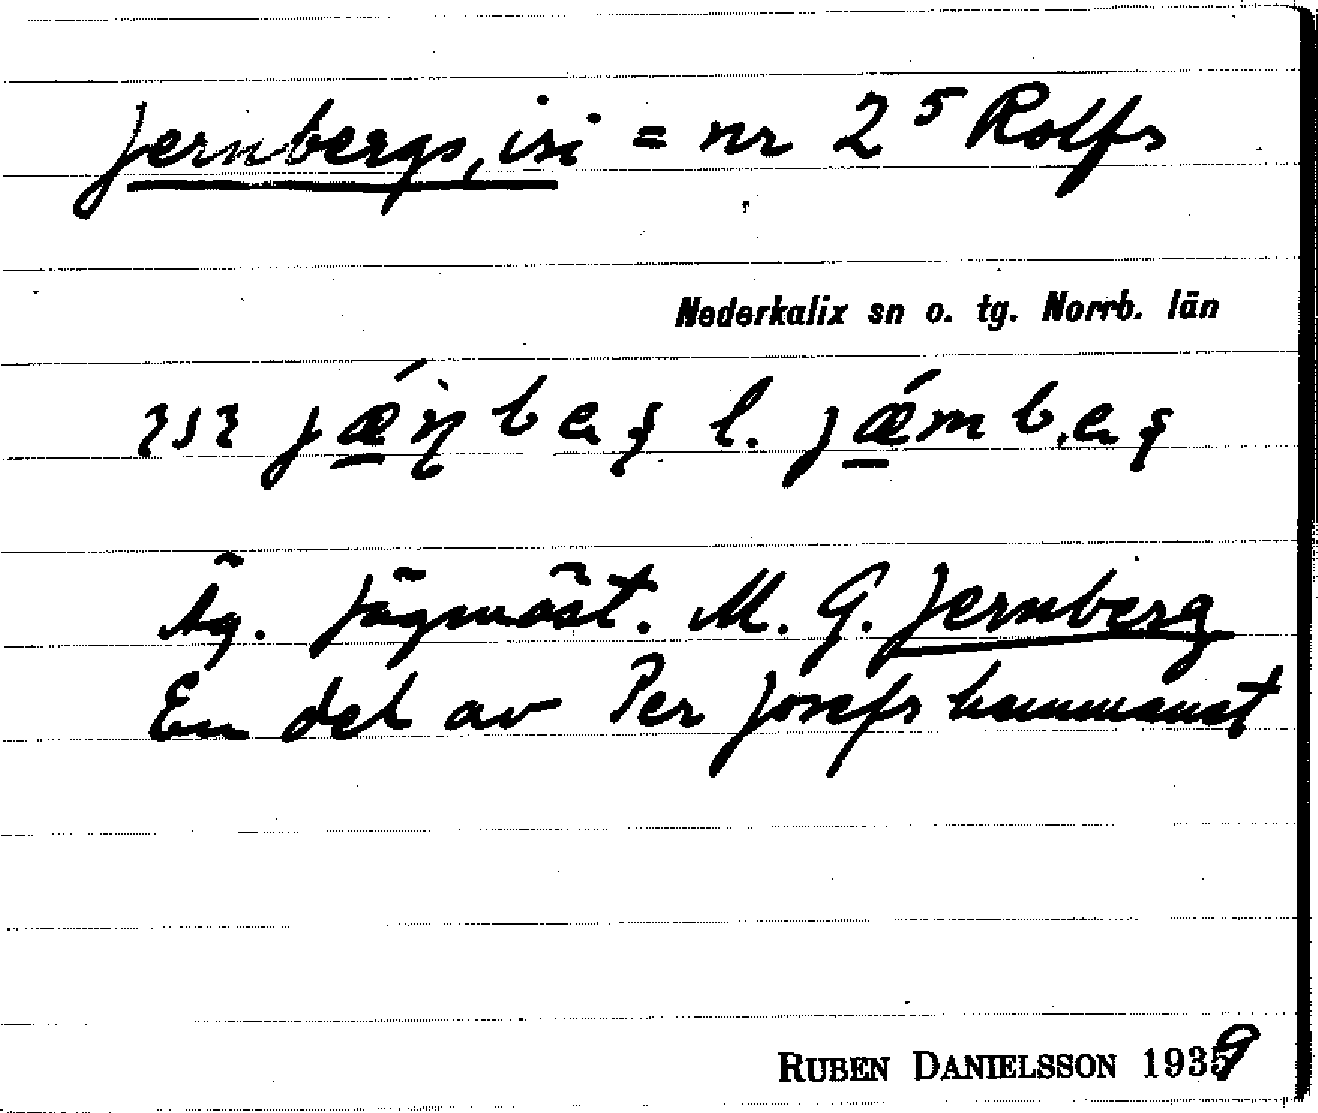 Jernbergs, isi = nr 2⁵ Rolfs
Nederkalix sn o. tg. Norrb. län
ısı jǽṇbeṛg l. jǽmbeṛg
Äg. Jägmäst. M. G. Jernberg
En del av Per Josefs hemmanet
RUBEN DANIELSSON 1939